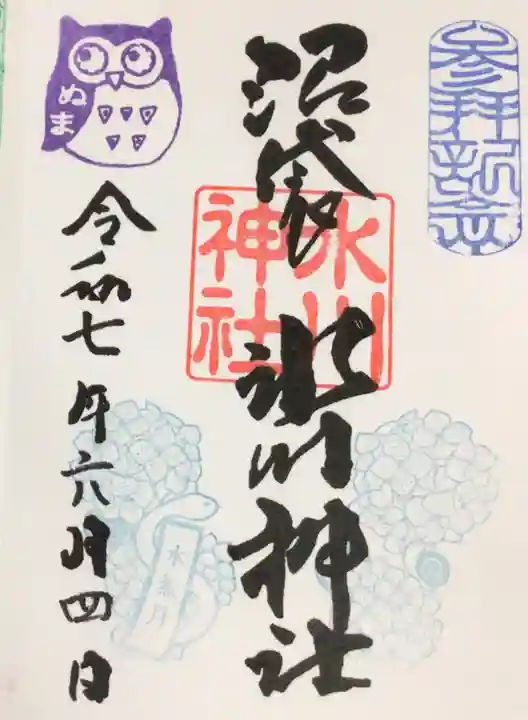 参拝記念
沼袋 氷川神社
氷川
神社
ぬま
令和七年六月四日
水無月